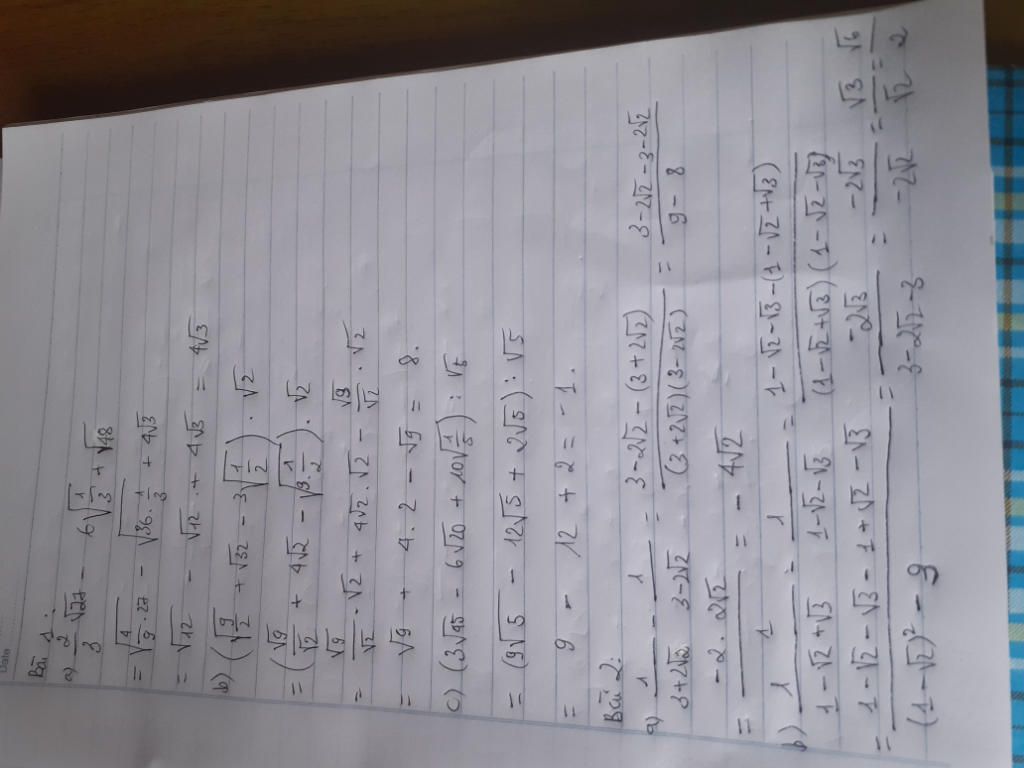 Date
Bài 1:
a) 2/3 √27 - 6√(1/3) + √48
= √(4/9 . 27) - √(36 . 1/3) + 4√3
= √12 - √12 + 4√3 = 4√3
b) (√(9/2) + √32 - 3√(1/2)) . √2
= (√9/√2 + 4√2 - √(9 . 1/2)) . √2
= √9/√2 . √2 + 4√2 . √2 - √9/√2 . √2
= √9 + 4 . 2 - √9 = 8.
c) (3√45 - 6√20 + 10√(1/5)) : √5
= (9√5 - 12√5 + 2√5) : √5
= 9 - 12 + 2 = -1.
Bài 2:
a) 1/(3+2√2) - 1/(3-2√2) = (3-2√2 - (3+2√2))/((3+2√2)(3-2√2)) = (3-2√2-3-2√2)/(9-8)
= (-2 . 2√2)/1 = -4√2
b) 1/(1-√2+√3) - 1/(1-√2-√3) = (1-√2-√3-(1-√2+√3))/((1-√2+√3)(1-√2-√3))
= (1-√2-√3-1+√2-√3)/((1-√2)² - 9) = (-2√3)/(3-2√2-3) = (-2√3)/(-2√2) = √3/√2 = √6/2